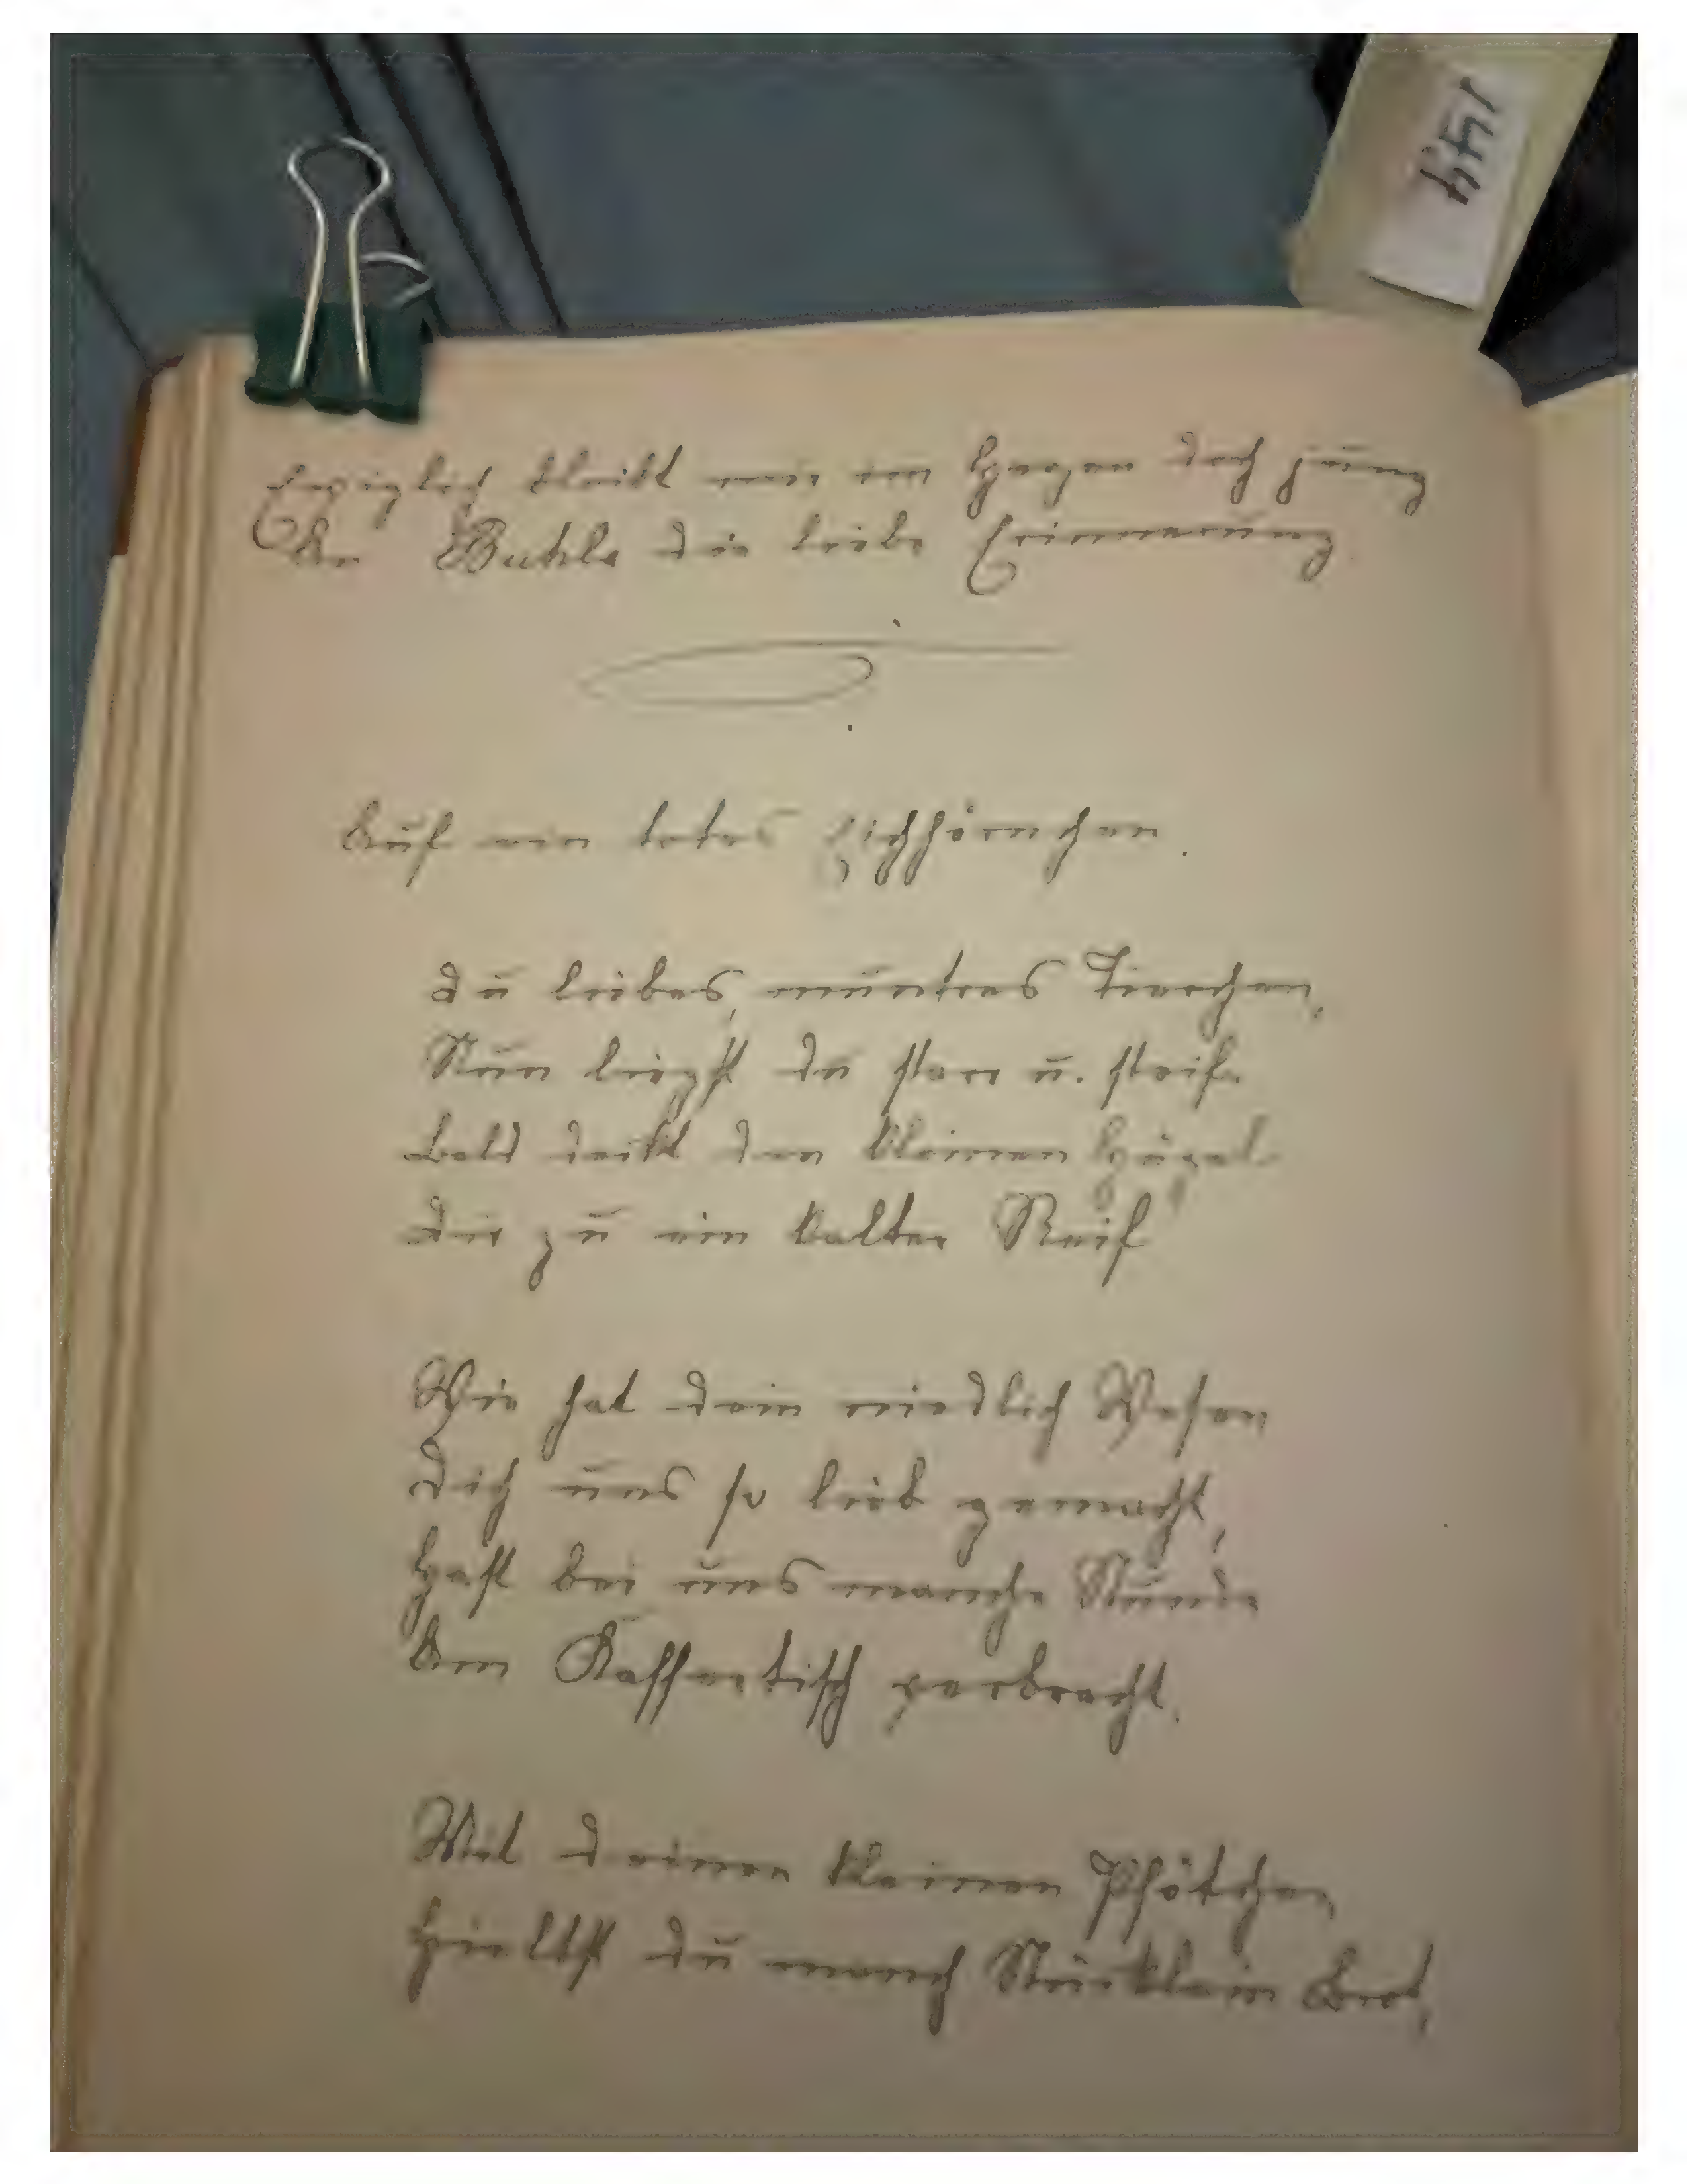 144
Ewiglich bleibt mir im Herzen doch jung
An Buhla die liebe Erinnerung.
Auf ein totes Eichhörnchen.
Du liebes, muntres Tierchen,
Nun liegst du starr u. steif.
Bald deckt den kleinen Hügel
Dir zu ein kalter Reif
Wie hat dein niedlich Wesen
Dich uns so lieb gemacht,
Hast bei uns manche Stunde
Am Kaffeetisch verbracht.
Mit deinen kleinen Pfötchen
Hieltst du manch Stücklein Brot,